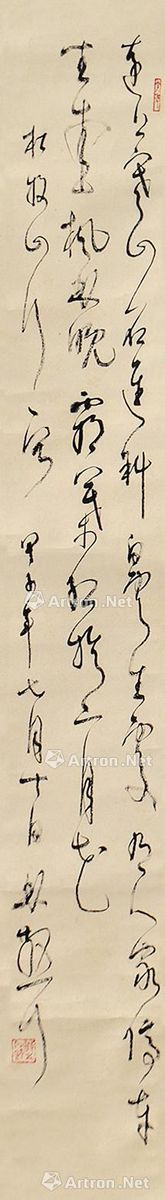 遠上寒山石徑斜白雲生處有人家停車
坐愛楓林晚霜葉紅於二月花
杜牧山行 甲子年七月十日林
Artron.Net
Artron.Net
Artron.Net
Artron.Net